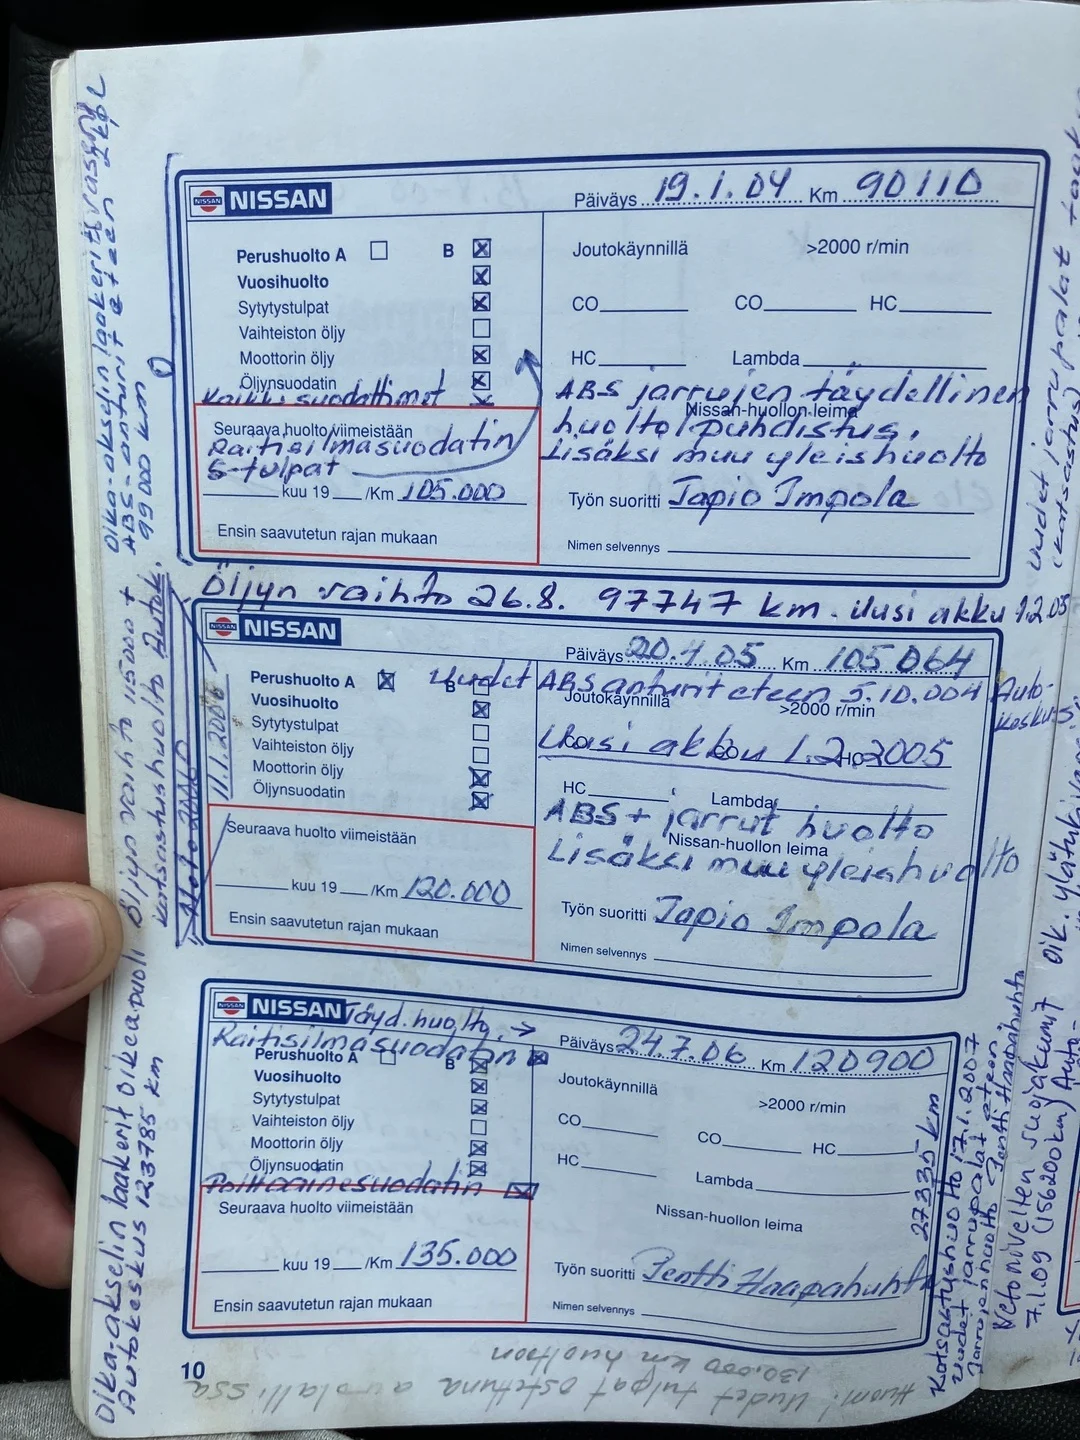 NISSAN
Päiväys 19.1.04 Km 90110
Perushuolto A B
Vuosihuolto
Sytytystulpat
Vaihteiston öljy
Moottorin öljy
Öljynsuodatin
Kaikki suodattimet
Joutokäynnillä >2000 r/min
CO CO HC
HC Lambda
ABS jarrujen täydellinen
Nissan-huollon leima
huolto/puhdistus.
Lisäksi muu yleishuolto
Työn suoritti Tapio Impola
Nimen selvennys
Seuraava huolto viimeistään
Raitisilmasuodatin
S-tulpat
kuu 19 /Km 105.000
Ensin saavutetun rajan mukaan
Öljyn vaihto 26.8. 97747 km. Uusi akku 1.2.05
NISSAN
Päiväys 20.1.05 Km 105064
Perushuolto A B
Uudet ABS anturit eteen 5.10.004 Auto-
keskus
Vuosihuolto
Sytytystulpat
Vaihteiston öljy
Moottorin öljy
Öljynsuodatin
11.1.2006
Joutokäynnillä >2000 r/min
Uusi akku 1.2.2005
CO HC
HC Lambda
ABS + jarrut huolto
Nissan-huollon leima
Lisäksi muu yleishuolto
Työn suoritti Tapio Impola
Nimen selvennys
Seuraava huolto viimeistään
kuu 19 /Km 120.000
Ensin saavutetun rajan mukaan
NISSAN Täyd. huolto
Raitisilmasuodatin
Päiväys 24.7.06 Km 120900
Perushuolto A B
Vuosihuolto
Sytytystulpat
Vaihteiston öljy
Moottorin öljy
Öljynsuodatin
Polttoainesuodatin
Joutokäynnillä >2000 r/min
CO CO HC
HC Lambda
Nissan-huollon leima
Työn suoritti Pentti Haapahuhta
Nimen selvennys
Seuraava huolto viimeistään
kuu 19 /Km 135.000
Ensin saavutetun rajan mukaan
10
Huom! Uudet tulpat ostettuna
130.000 km huoltoon
Oika-akselin laakerit
ABS-anturit eteen 2kpl
99000 km
Öljyn vaihto 115000 +
katsastushuolto Autok.
Oika-akselin laakerit oikea puoli
Autokeskus 123785 km
Katsastushuolto 17.1.2007 27335 km
Uudet jarrupalat eteen
Jarrujenhuolto Pentti Haapahuhta
Vetonivelten suojakumit
7.1.09 (156200 km) Auto-
Uudet jarrupalat
(katsastus)